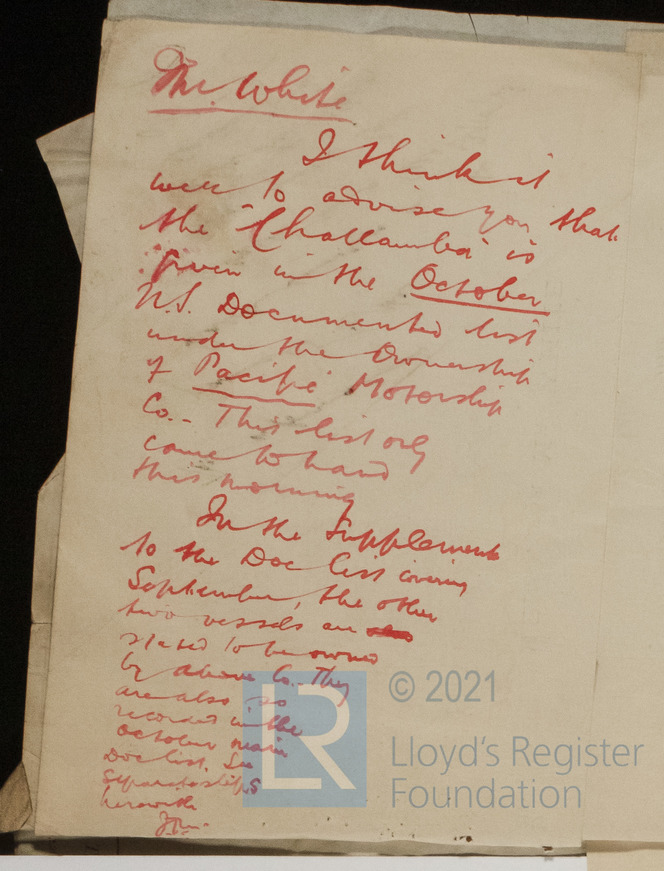 Mr. White
I think it
well to advise you that
the "Challamba" is
given in the October
U.S. Documented list
under the Ownership
of Pacific Motorship
Co. - This list only
came to hand
this morning
In the Supplement
to the Doc list covering
September, the other
two vessels are
stated to be owned
by above Co. - They
are also so
recorded in the
October main
Doc list. See
separate slips
herewith
© 2021
LR
Lloyd's Register
Foundation